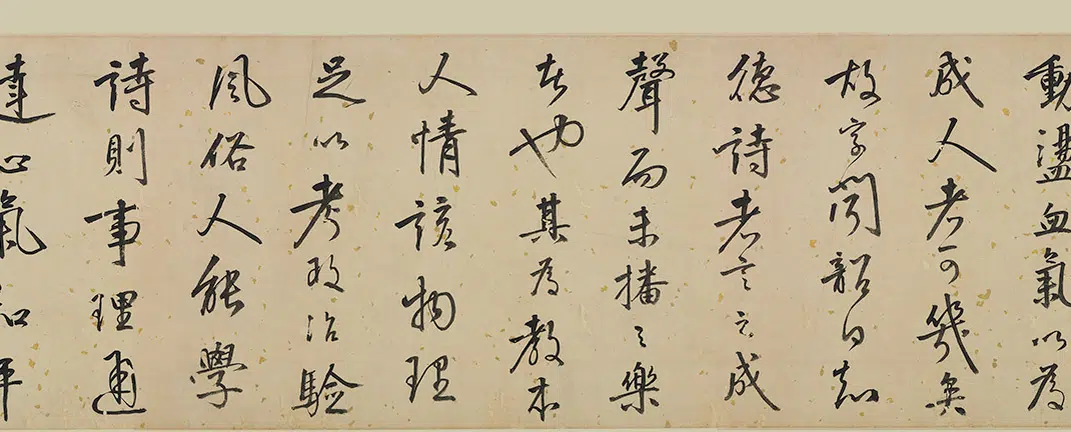 動盪血氣以為
成人者可幾矣
故字聞韶曰知
德詩者言之成
聲而未播之樂
者也其為教本
人情該物理
足以考政治驗
風俗人能學
詩則事理通
達心氣和平